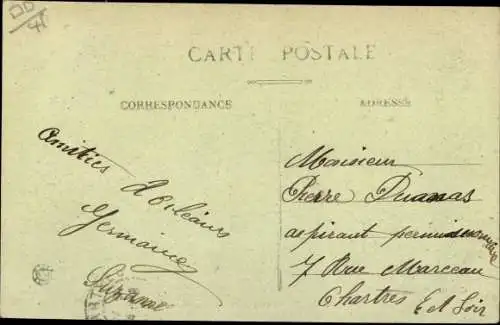 CARTE POSTALE
CORRESPONDANCE
ADRESSE
Amitiés
d'Orléans
Germaine
Suzanne
Monsieur
Pierre Dumas
aspirant permissionnaire
7 Rue Marceau
Chartres
E et Loir